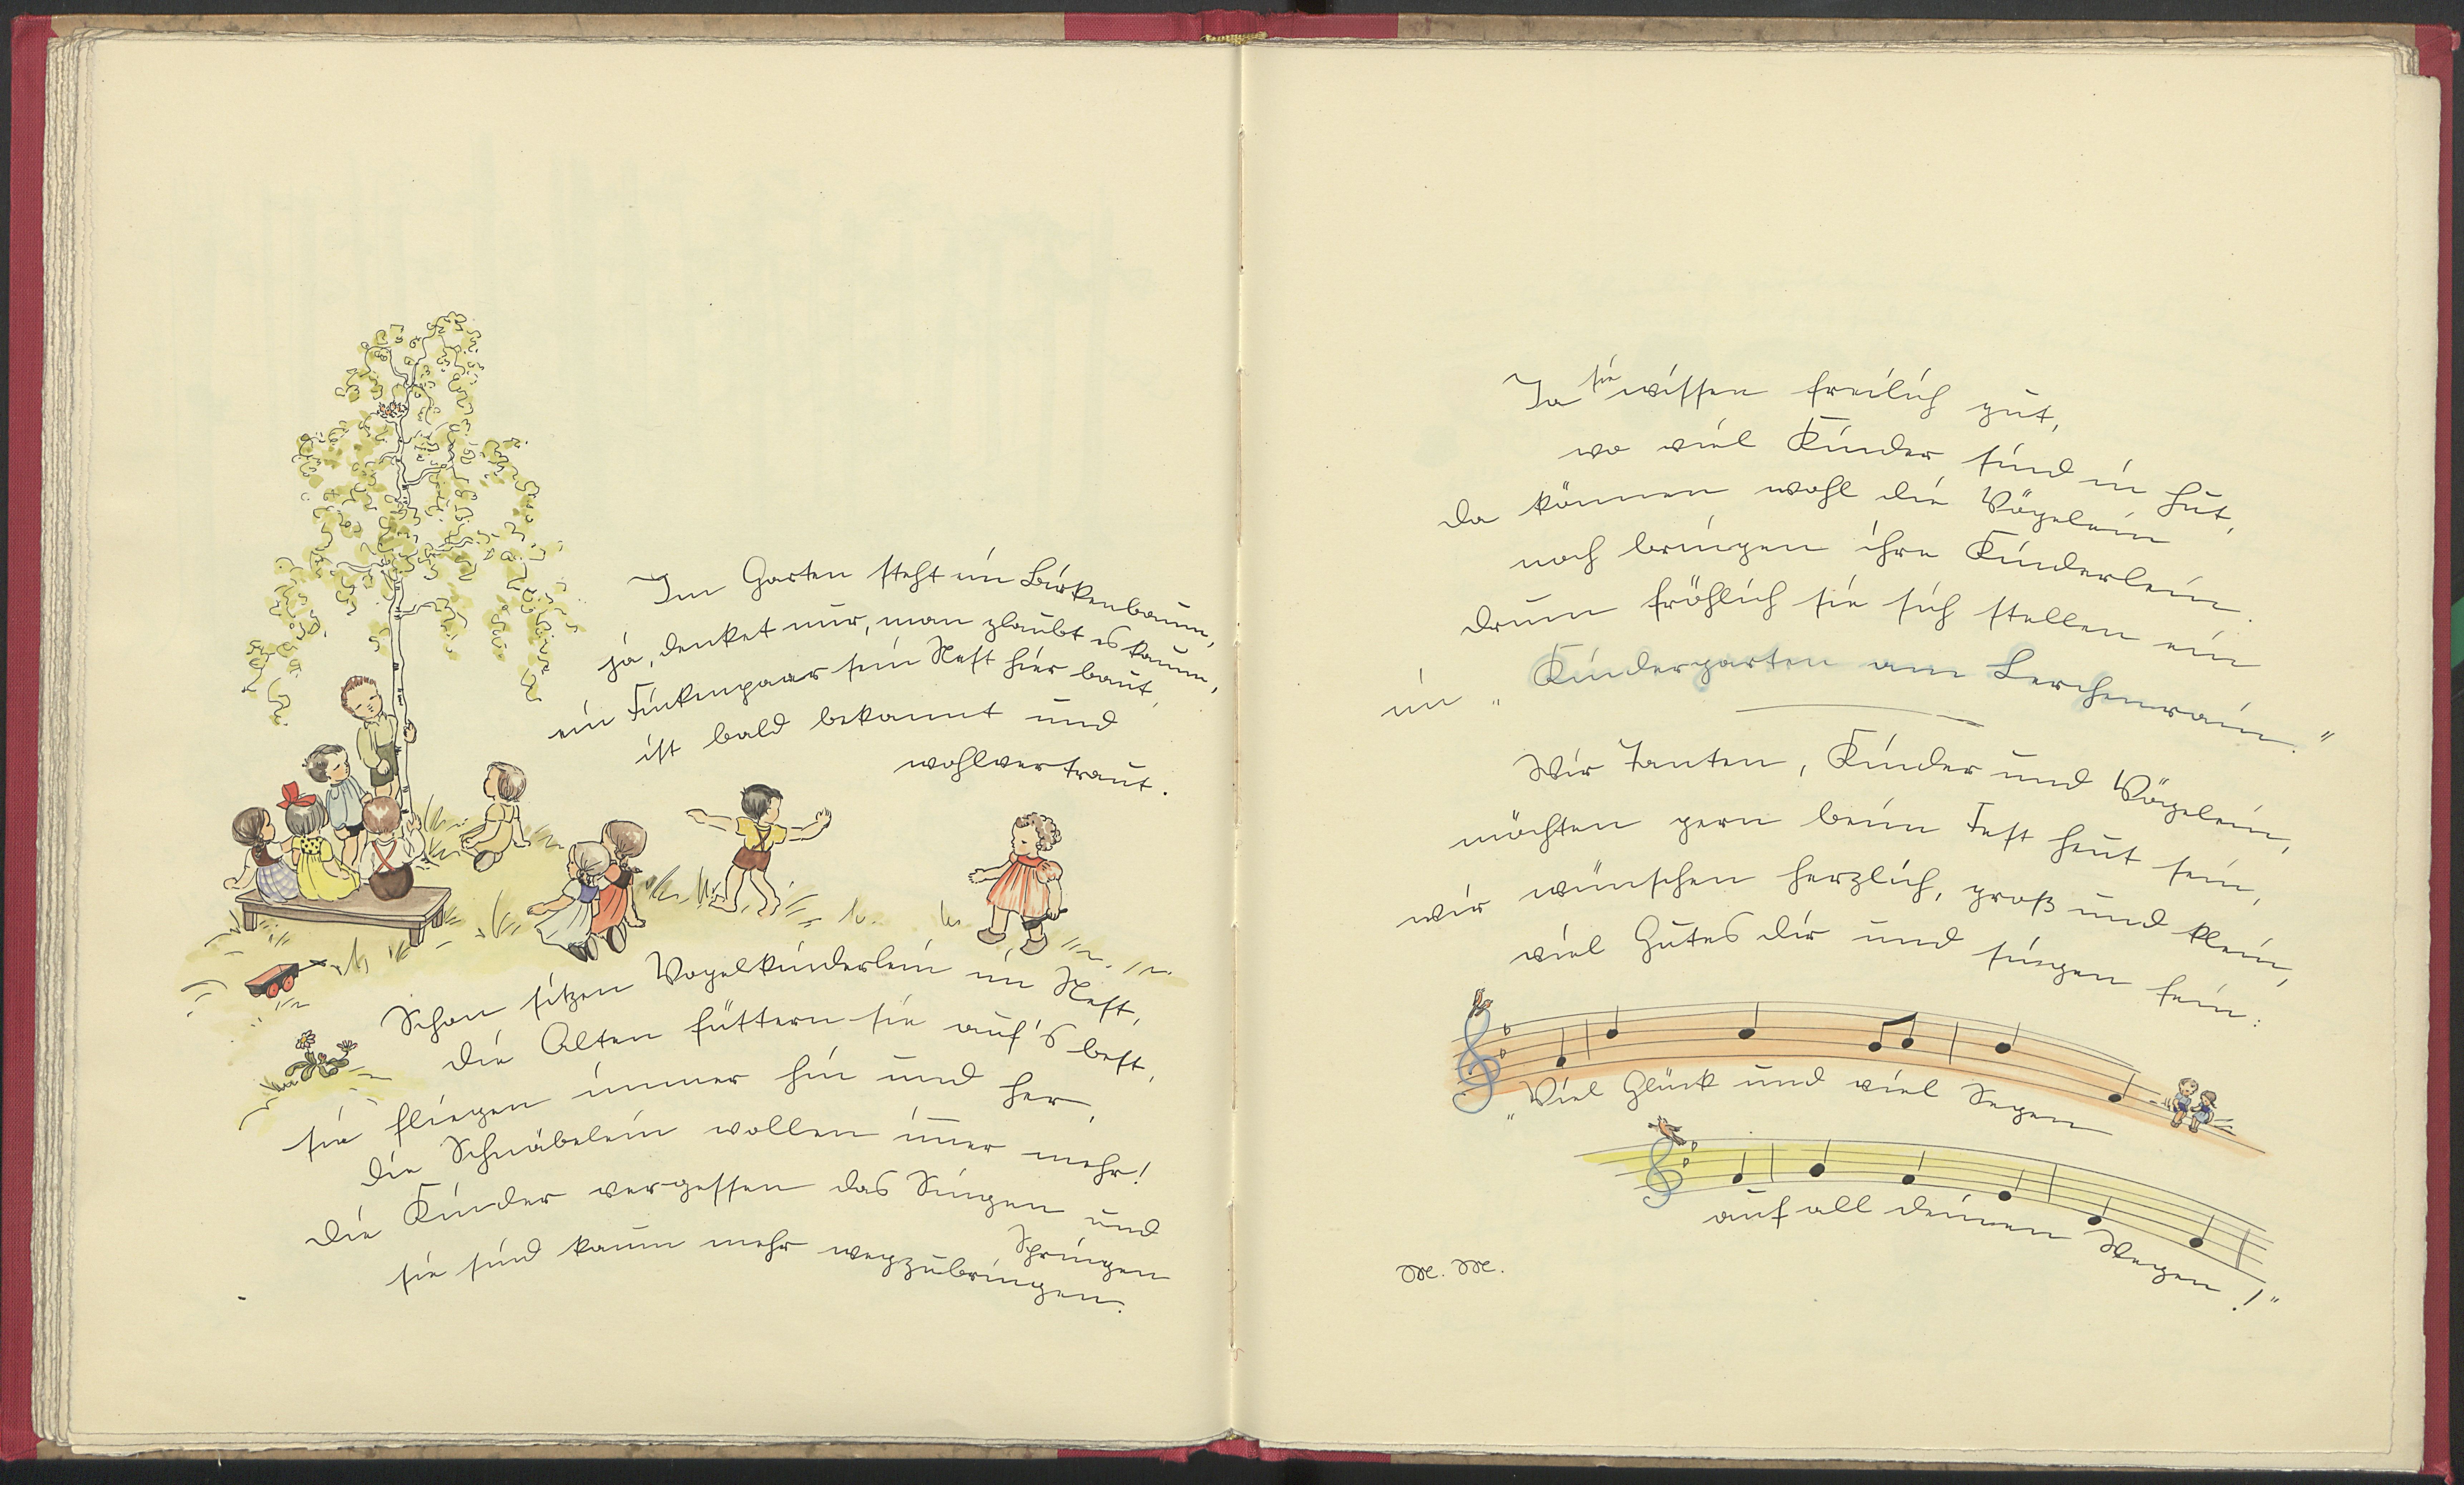 Im Garten steht ein Birkenbaum,
ja, denket nur, man glaubt es kaum,
ein Finkenpaar sein Nest hier baut,
ist bald bekannt und
wohlvertraut.
Schon sitzen Vogelkinderlein im Nest,
die Alten füttern sie auf's best,
sie fliegen immer hin und her,
die Schnäbelein wollen im̅er mehr!
Die Kinder vergessen das Singen und
Springen
sie sind kaum mehr wegzubringen.
Ja sie wissen freilich gut,
wo viel Kinder sind in Hut,
da können wohl die Vögelein
noch bringen ihre Kinderlein.
drum fröhlich sie sich stellen ein
im „Kindergarten am Lerchenrain."
Wir Tanten, Kinder und Vögelein,
möchten gern beim Fest heut sein,
wir wünschen herzlich, groß und klein,
viel Gutes dir und singen fein:
„Viel Glück und viel Segen
auf all deinen Wegen!"
M. M.